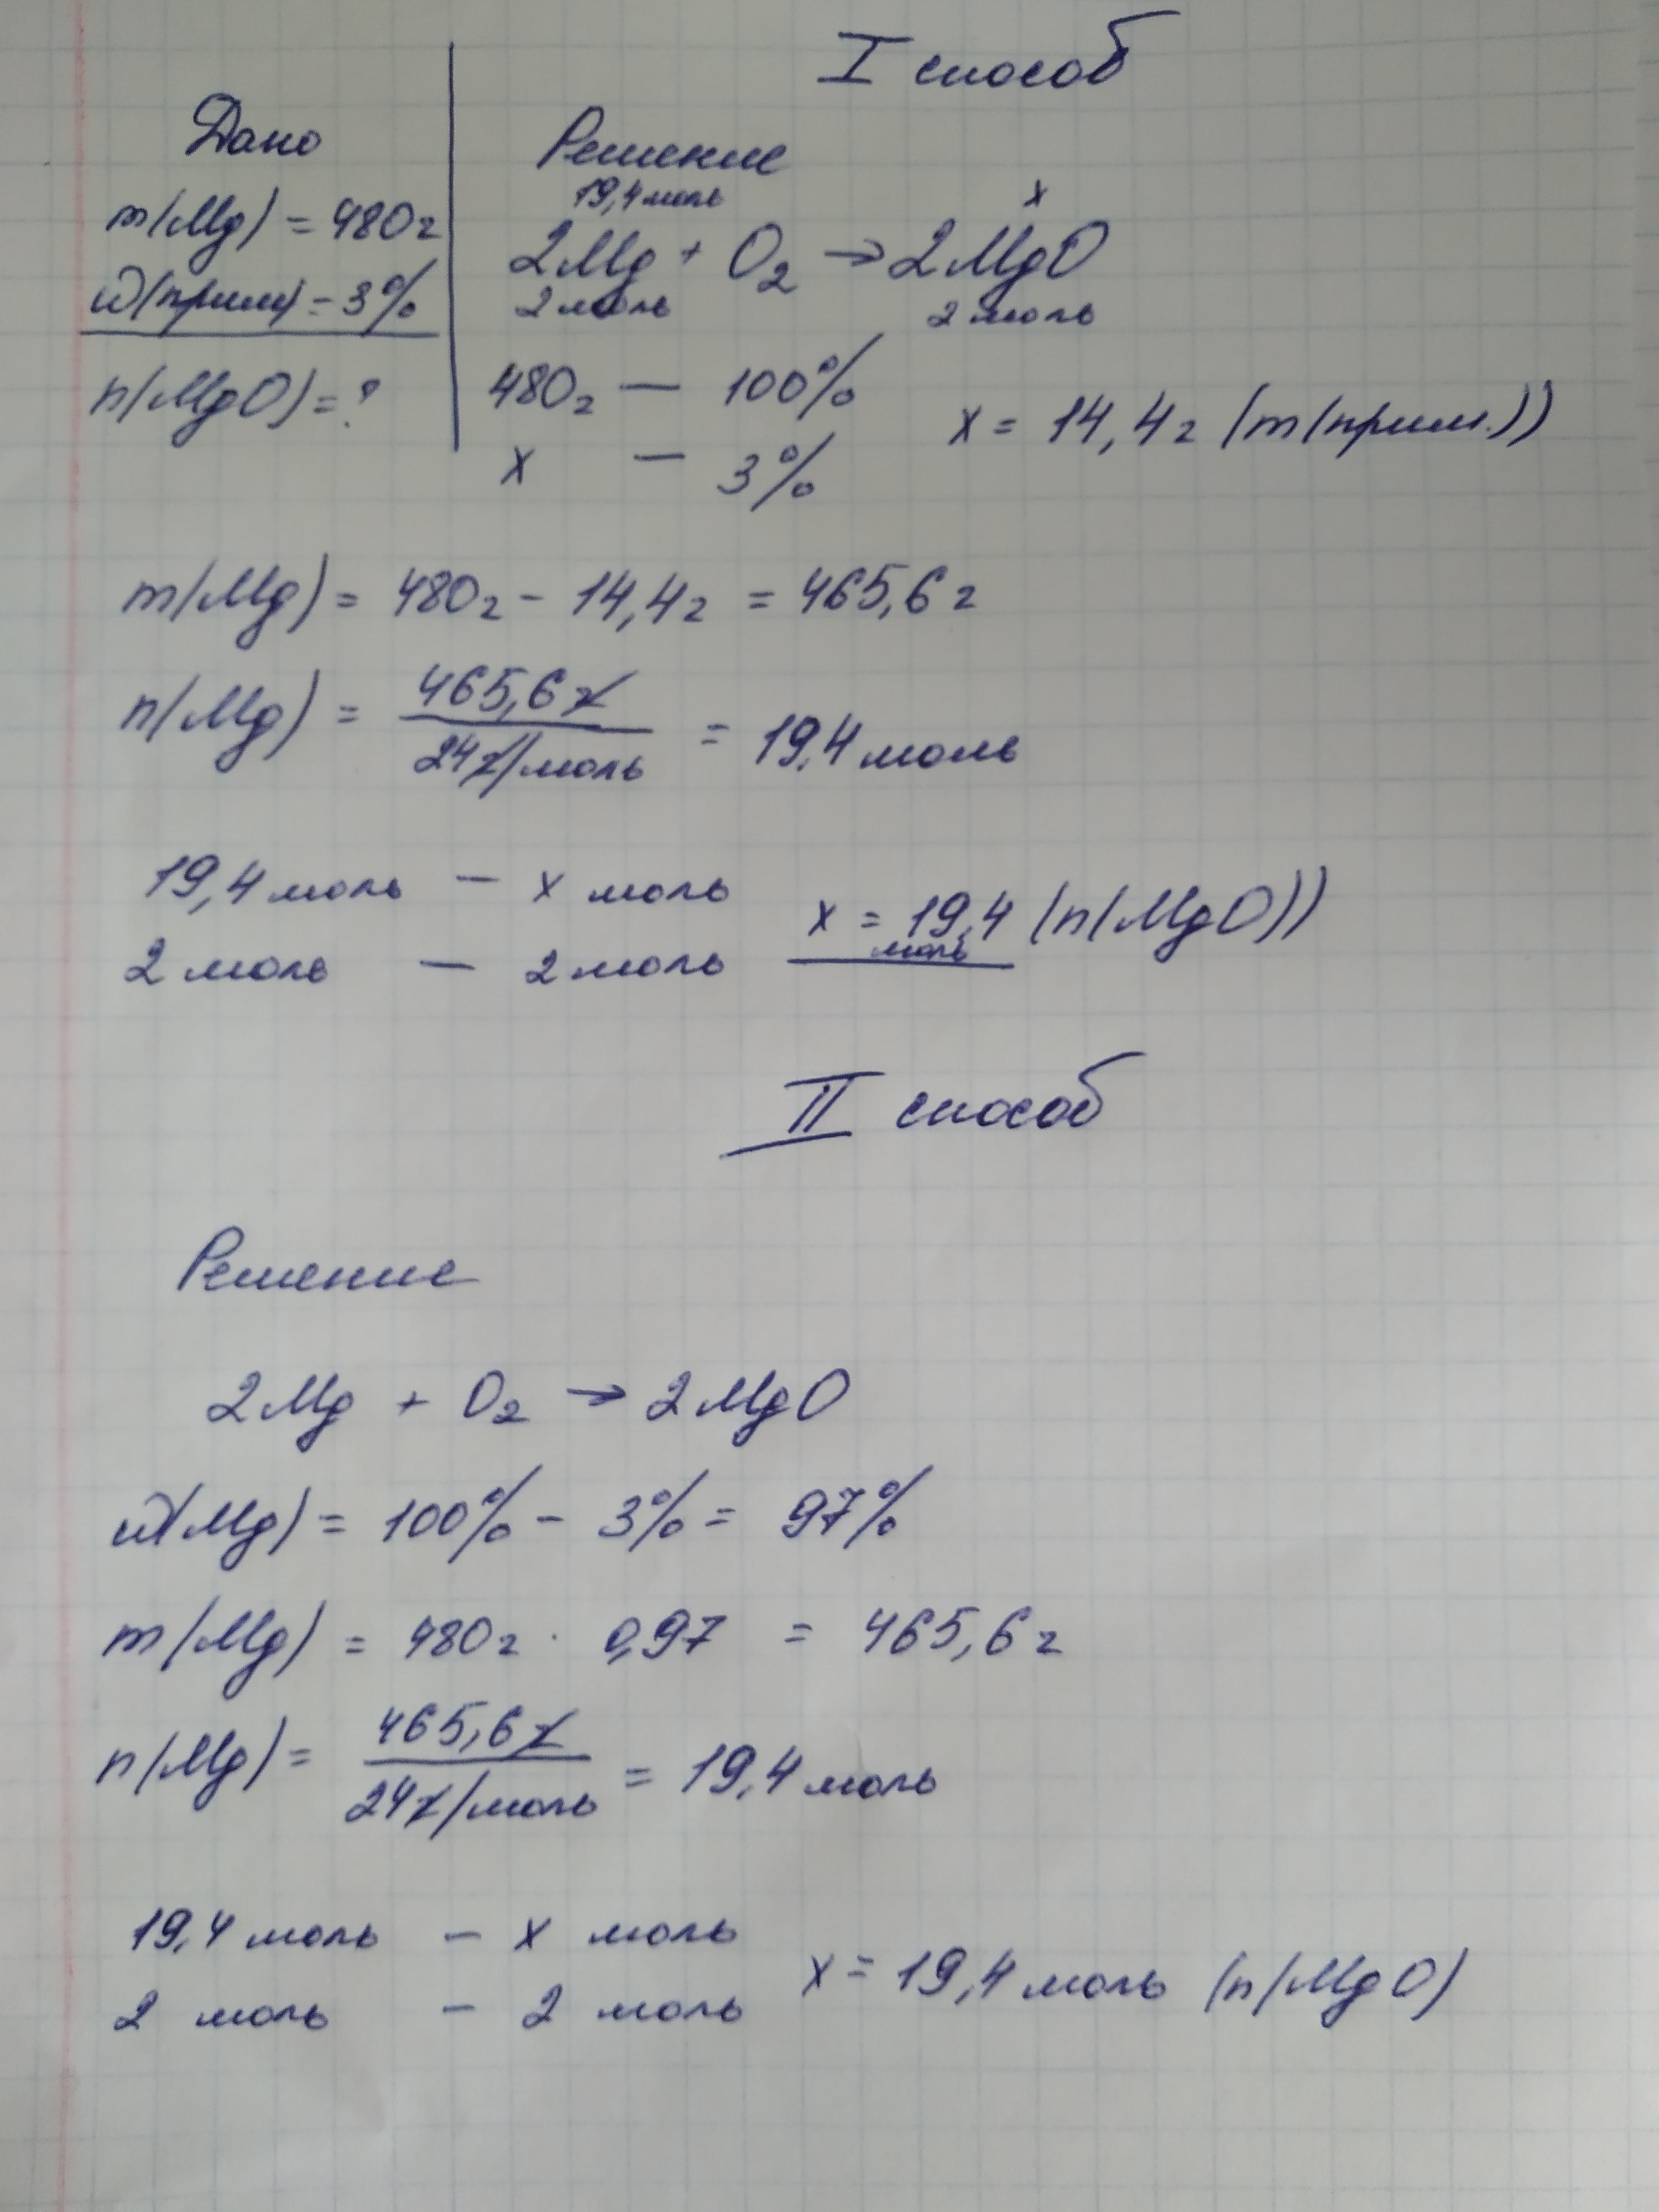 I способ
Дано
Решение
m(Mg) = 480г
19,4 моль x
2Mg + O₂ → 2MgO
ω(прим) = 3%
2 моль 2 моль
n(MgO) = ?
480г — 100%
x — 3%
x = 14,4г (m(прим.))
m(Mg) = 480г - 14,4г = 465,6г
n(Mg) = 465,6г / 24г/моль = 19,4 моль
19,4 моль — x моль
2 моль — 2 моль
x = 19,4 моль (n(MgO))
II способ
Решение
2Mg + O₂ → 2MgO
ω(Mg) = 100% - 3% = 97%
m(Mg) = 480г · 0,97 = 465,6г
n(Mg) = 465,6г / 24г/моль = 19,4 моль
19,4 моль — x моль
2 моль — 2 моль
x = 19,4 моль (n(MgO)